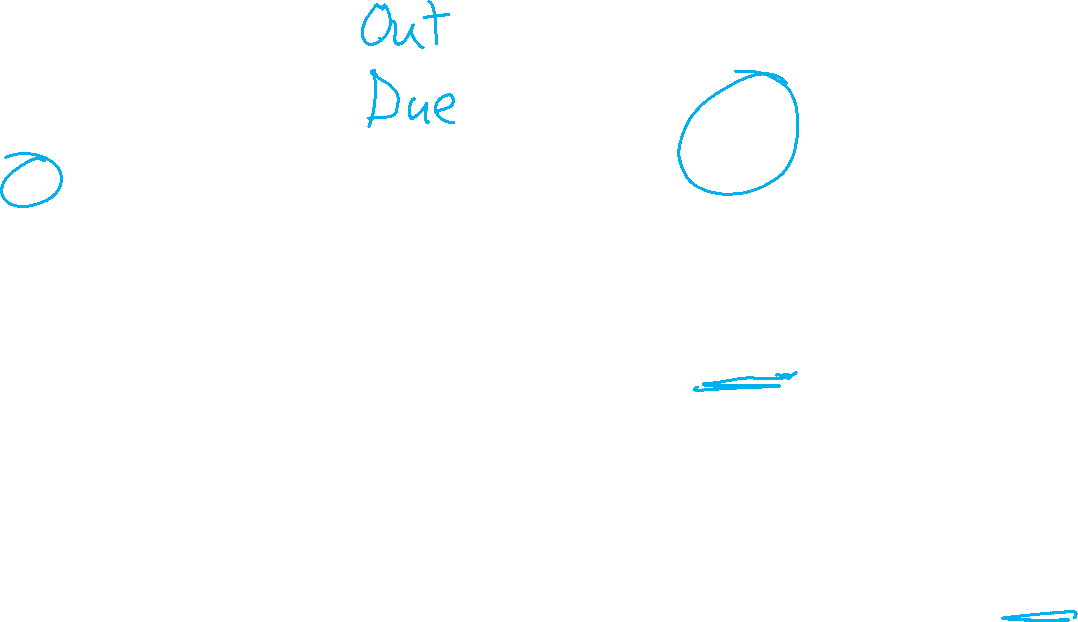 Out
Due